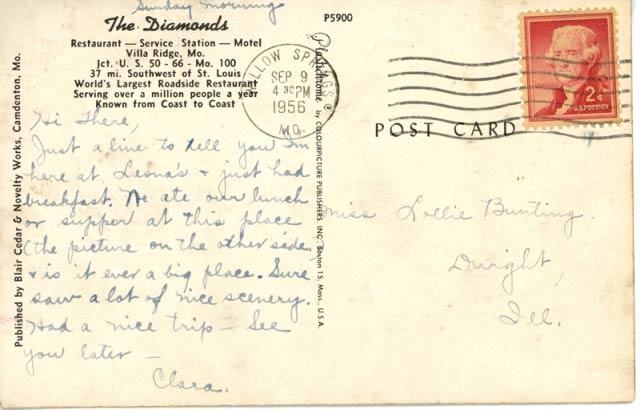 Sunday morning
The Diamonds
Restaurant — Service Station — Motel
Villa Ridge, Mo.
Jct. U. S. 50 - 66 - Mo. 100
37 mi. Southwest of St. Louis
World's Largest Roadside Restaurant
Serving over a million people a year
Known from Coast to Coast
Hi there,
Just a line to tell you I'm
here at Leona's & just had
breakfast. We ate our lunch
or supper at this place
(the picture on the other side
& is it ever a big place. Sure
saw a lot of nice scenery.
Had a nice trip — See
you later —
Clara.
Published by Blair Cedar & Novelty Works, Camdenton, Mo.
P5900
Plastichrome ® by COLOURPICTURE PUBLISHERS, INC. Boston 15, Mass., U.S.A.
LLOW SPRINGS
SEP 9
4 30 PM
1956
MO.
POST CARD
2¢
U.S. POSTAGE
Miss Lollie Bunting.
Dwight,
Ill.